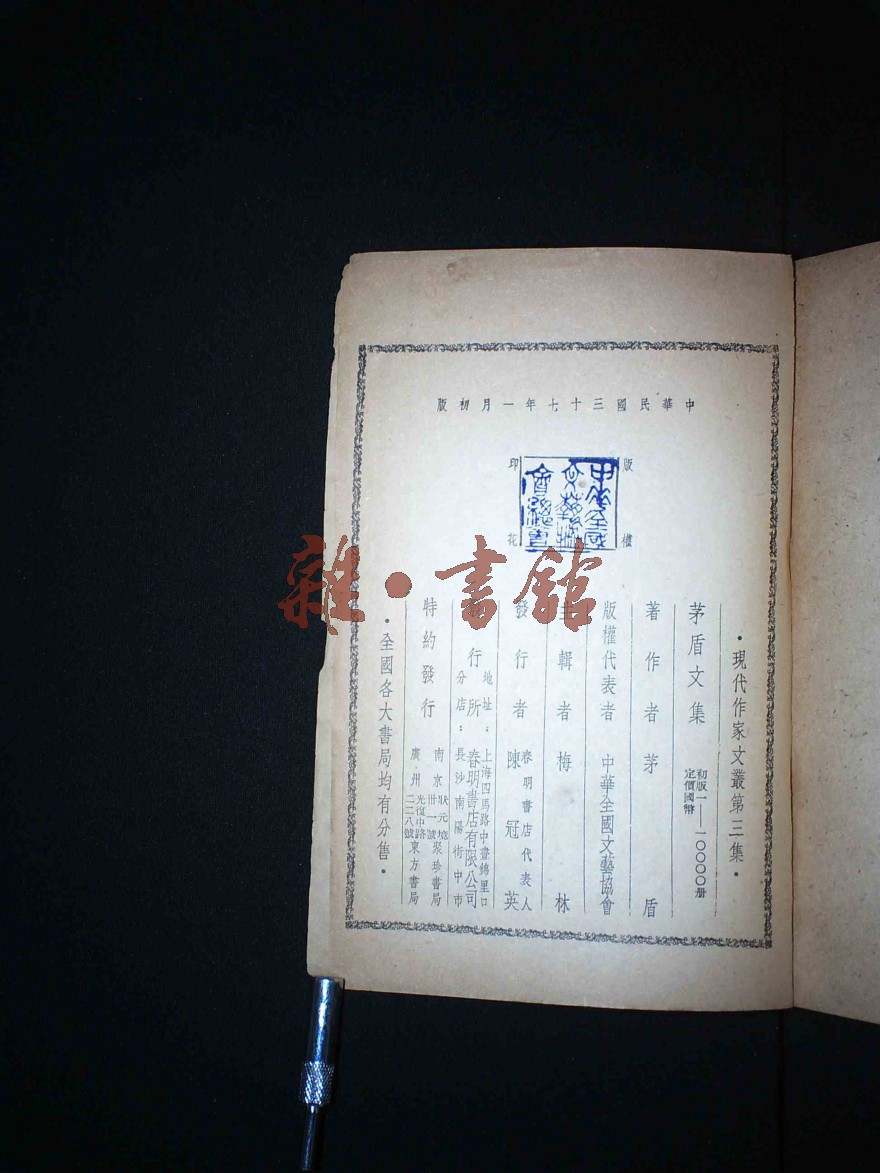 中華民國三十七年一月初版
版權
印花
雜·書館
·現代作家文叢第三集·
茅盾文集
初版一——一〇〇〇〇册
定價國幣
著作者 茅盾
版權代表者 中華全國文藝協會
主輯者 梅林
發行者 春明書店代表人 陳冠英
發行所 春明書店有限公司
地址：上海四馬路中晝錦里口
分店：長沙南陽街中市
特約發行
南京狀元境卅一號聚珍書局
廣州光復中路二二八號東方書局
·全國各大書局均有分售·